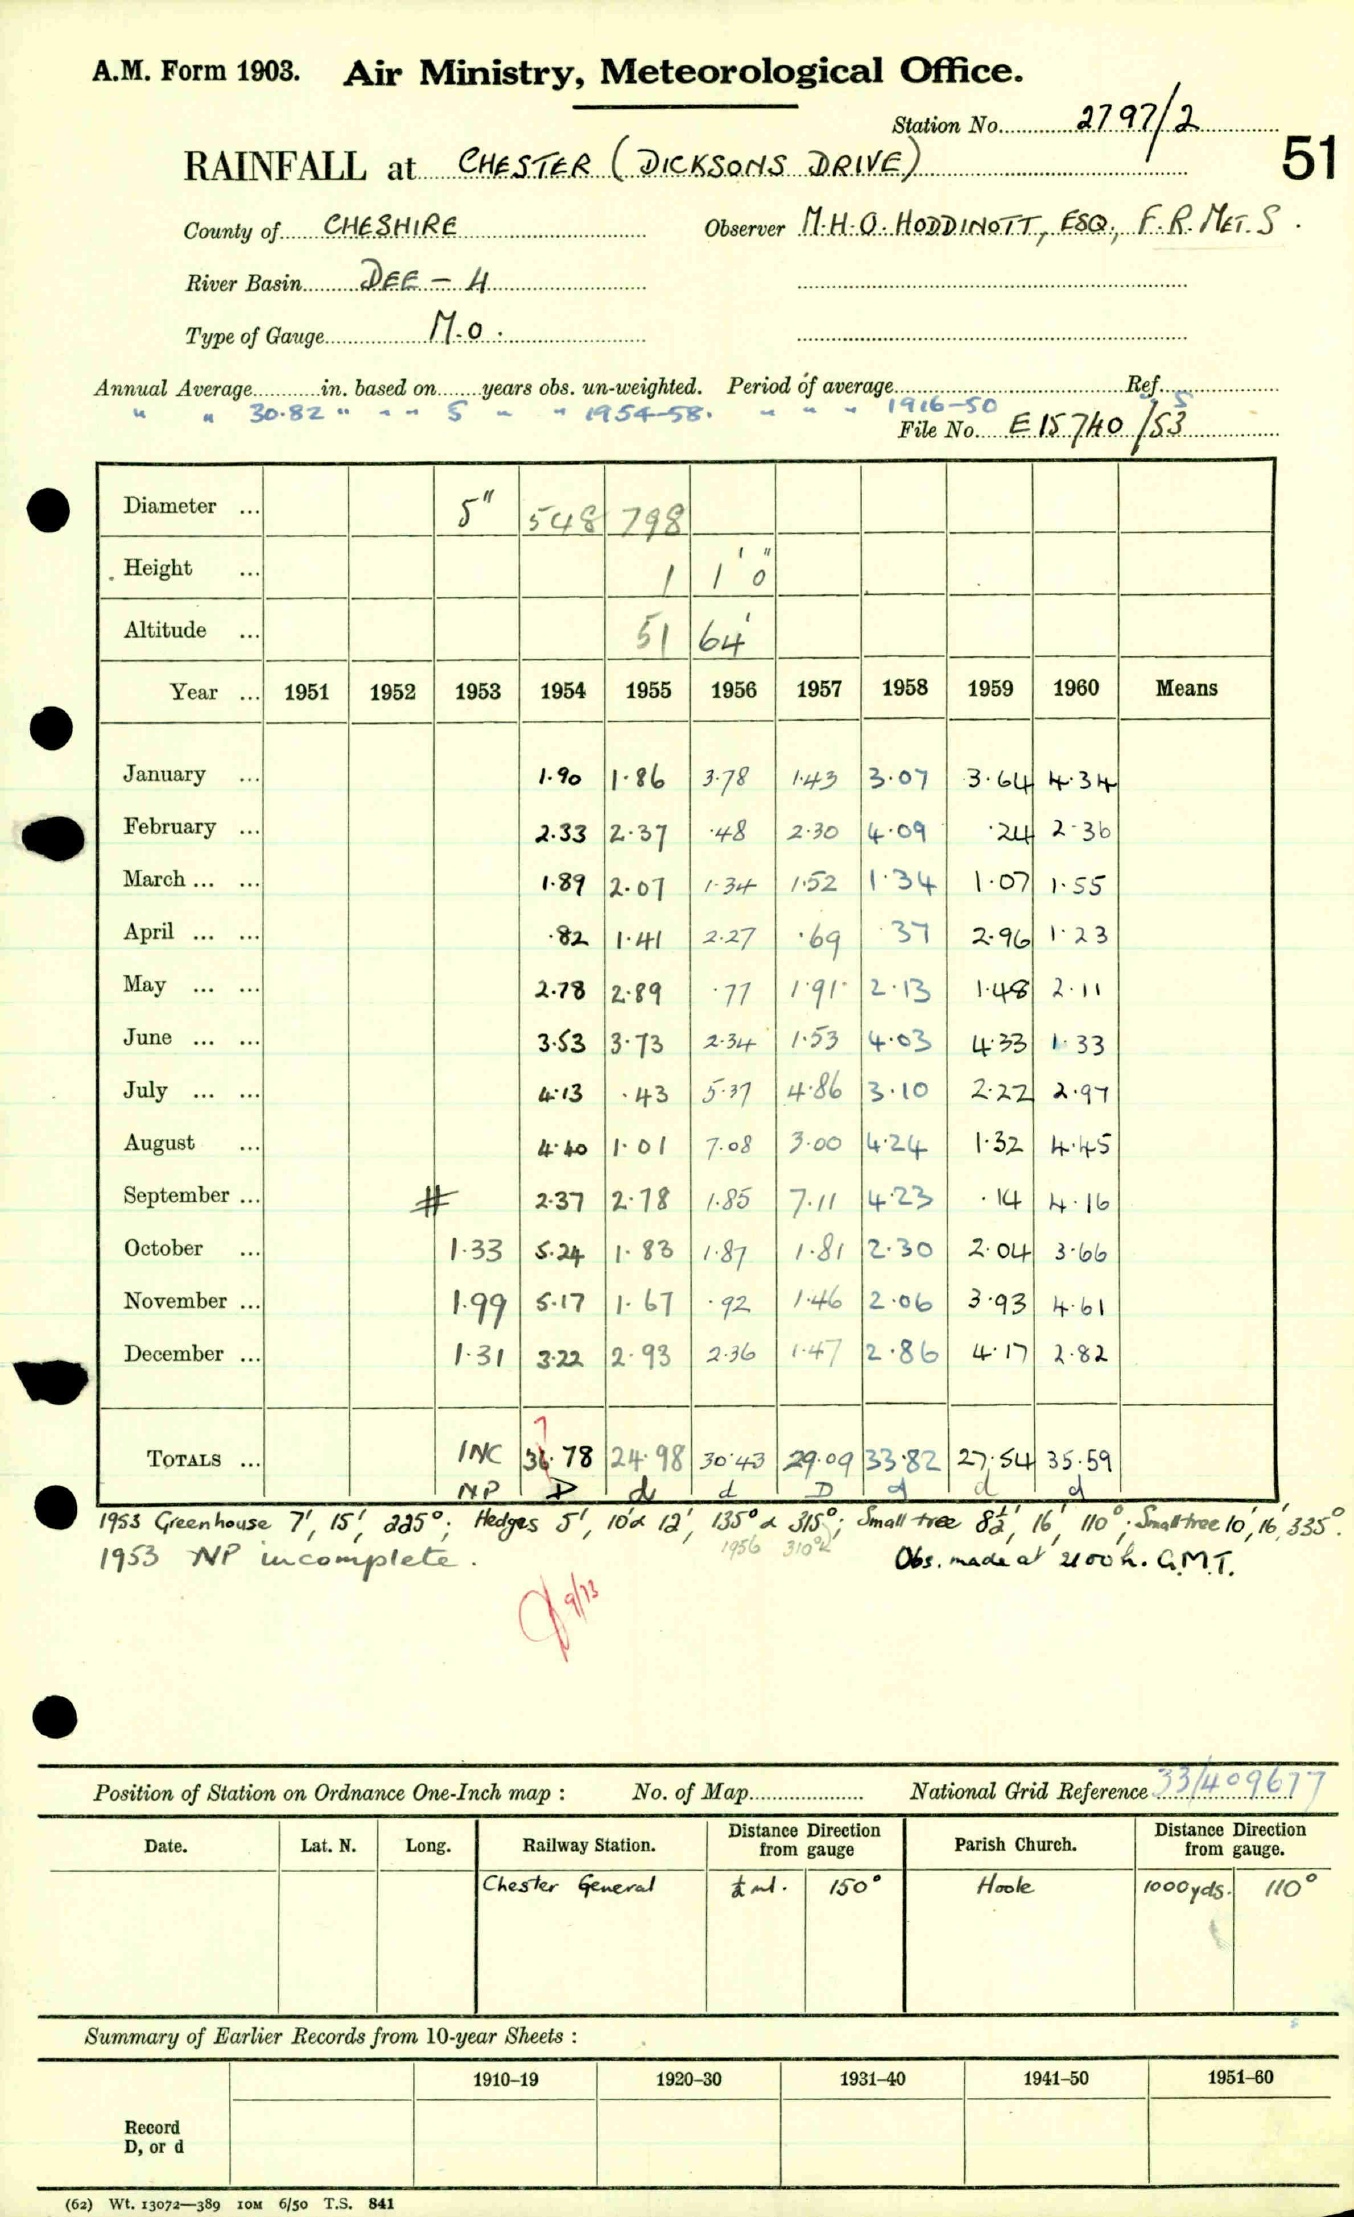 A.M. Form 1903. Air Ministry, Meteorological Office.
Station No. 2797/2
RAINFALL at CHESTER (DICKSONS DRIVE) 51
County of CHESHIRE Observer M.H.O. HODDINOTT, ESQ., F.R.MET.S.
River Basin DEE – 4
Type of Gauge M.O.
Annual Average in. based on years obs. un-weighted. Period of average Ref.
" " 30.82 " " " 5 " " 1954–58. " " " 1916–50 " 5
File No. E15740/53
Diameter ... 5" 548 798
Height ... 1 1' 0"
Altitude ... 51 64'
Year ... 1951 1952 1953 1954 1955 1956 1957 1958 1959 1960 Means
January ... 1.90 1.86 3.78 1.43 3.07 3.64 4.34
February ... 2.33 2.37 .48 2.30 4.09 .24 2.36
March ... ... 1.89 2.07 1.34 1.52 1.34 1.07 1.55
April ... ... .82 1.41 2.27 .69 37 2.96 1.23
May ... ... 2.78 2.89 .77 1.91 2.13 1.48 2.11
June ... ... 3.53 3.73 2.34 1.53 4.03 4.33 1.33
July ... ... 4.13 .43 5.37 4.86 3.10 2.22 2.97
August ... 4.40 1.01 7.08 3.00 4.24 1.32 4.45
September ... # 2.37 2.78 1.85 7.11 4.23 .14 4.16
October ... 1.33 5.24 1.83 1.87 1.81 2.30 2.04 3.66
November ... 1.99 5.17 1.67 .92 1.46 2.06 3.93 4.61
December ... 1.31 3.22 2.93 2.36 1.47 2.86 4.17 2.82
7
TOTALS ... INC 36.78 24.98 30.43 29.09 33.82 27.54 35.59
NP D d d D d d d
1953 Greenhouse 7', 15', 225°; Hedges 5', 10' & 12', 135° & 315°; Small tree 8½', 16', 110°; Small tree 10', 16', 335°.
1956 310°
1953 NP incomplete. Obs. made at 2100h. G.M.T.
9/73
Position of Station on Ordnance One-Inch map : No. of Map National Grid Reference 33/409677
Date. Lat. N. Long. Railway Station. Distance Direction from gauge Parish Church. Distance Direction from gauge.
Chester General ½ ml. 150° Hoole 1000 yds. 110°
Summary of Earlier Records from 10-year Sheets :
1910–19 1920–30 1931–40 1941–50 1951–60
Record
D, or d
(62) Wt. 13072—389 10M 6/50 T.S. 841